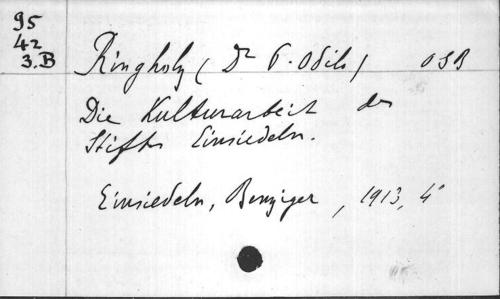 95
42
3.B
Ringholz (Dr P. Odilo) OSB
Die Kulturarbeit des
Stiftes Einsiedeln.
Einsiedeln, Benziger, 1913, 4°